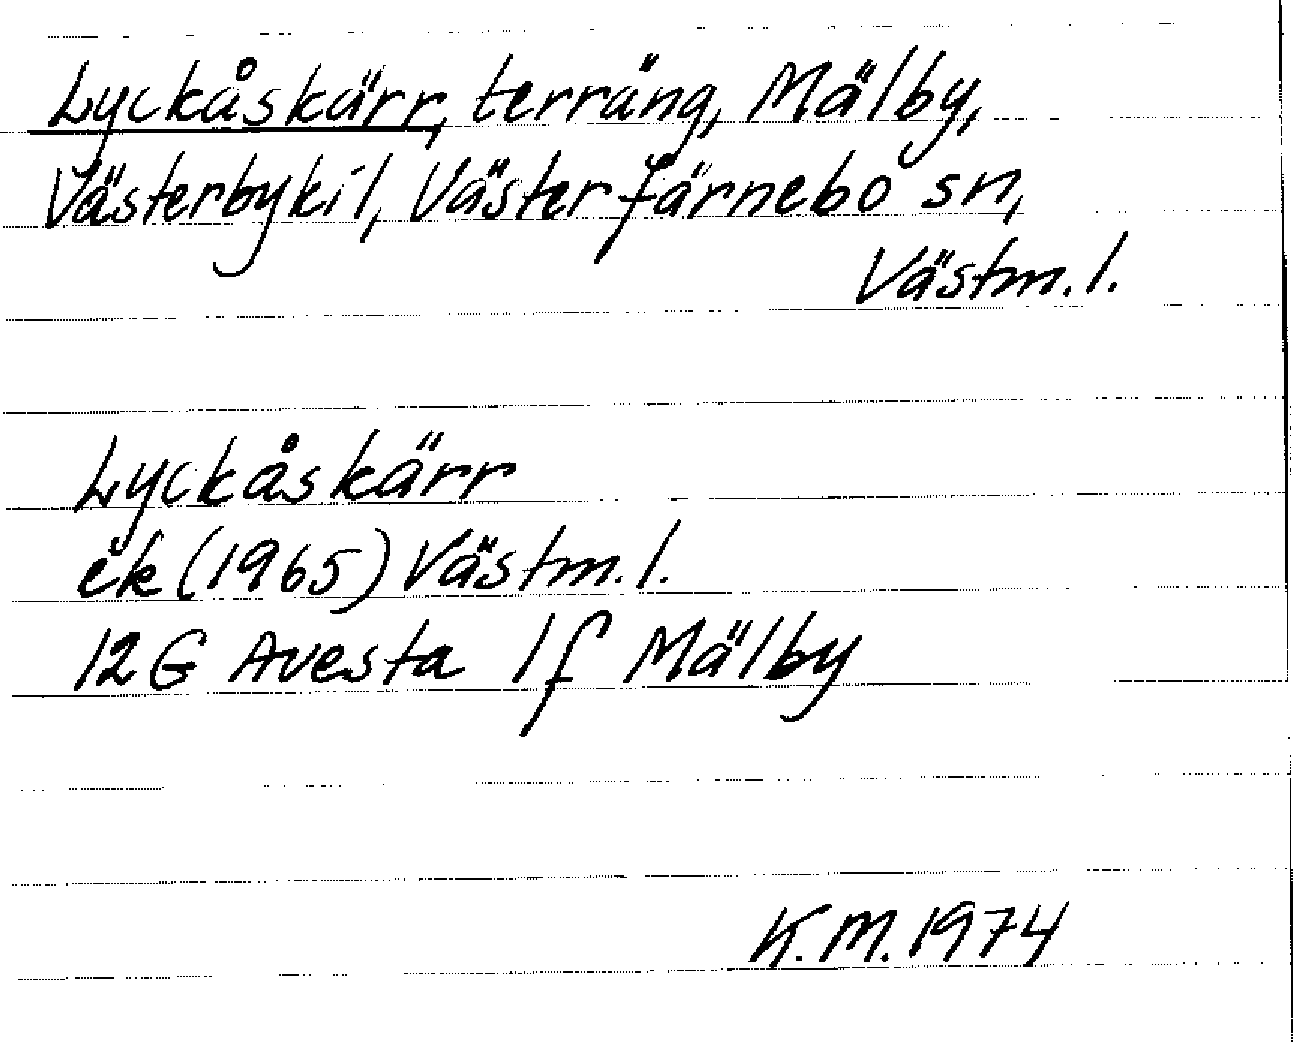 Lyckåskärr, terräng, Mälby,
Västerbykil, Västerfärnebo sn,
Västm. l.
Lyckåskärr
ek (1965) Västm. l.
12G Avesta 1f Mälby
K.M. 1974